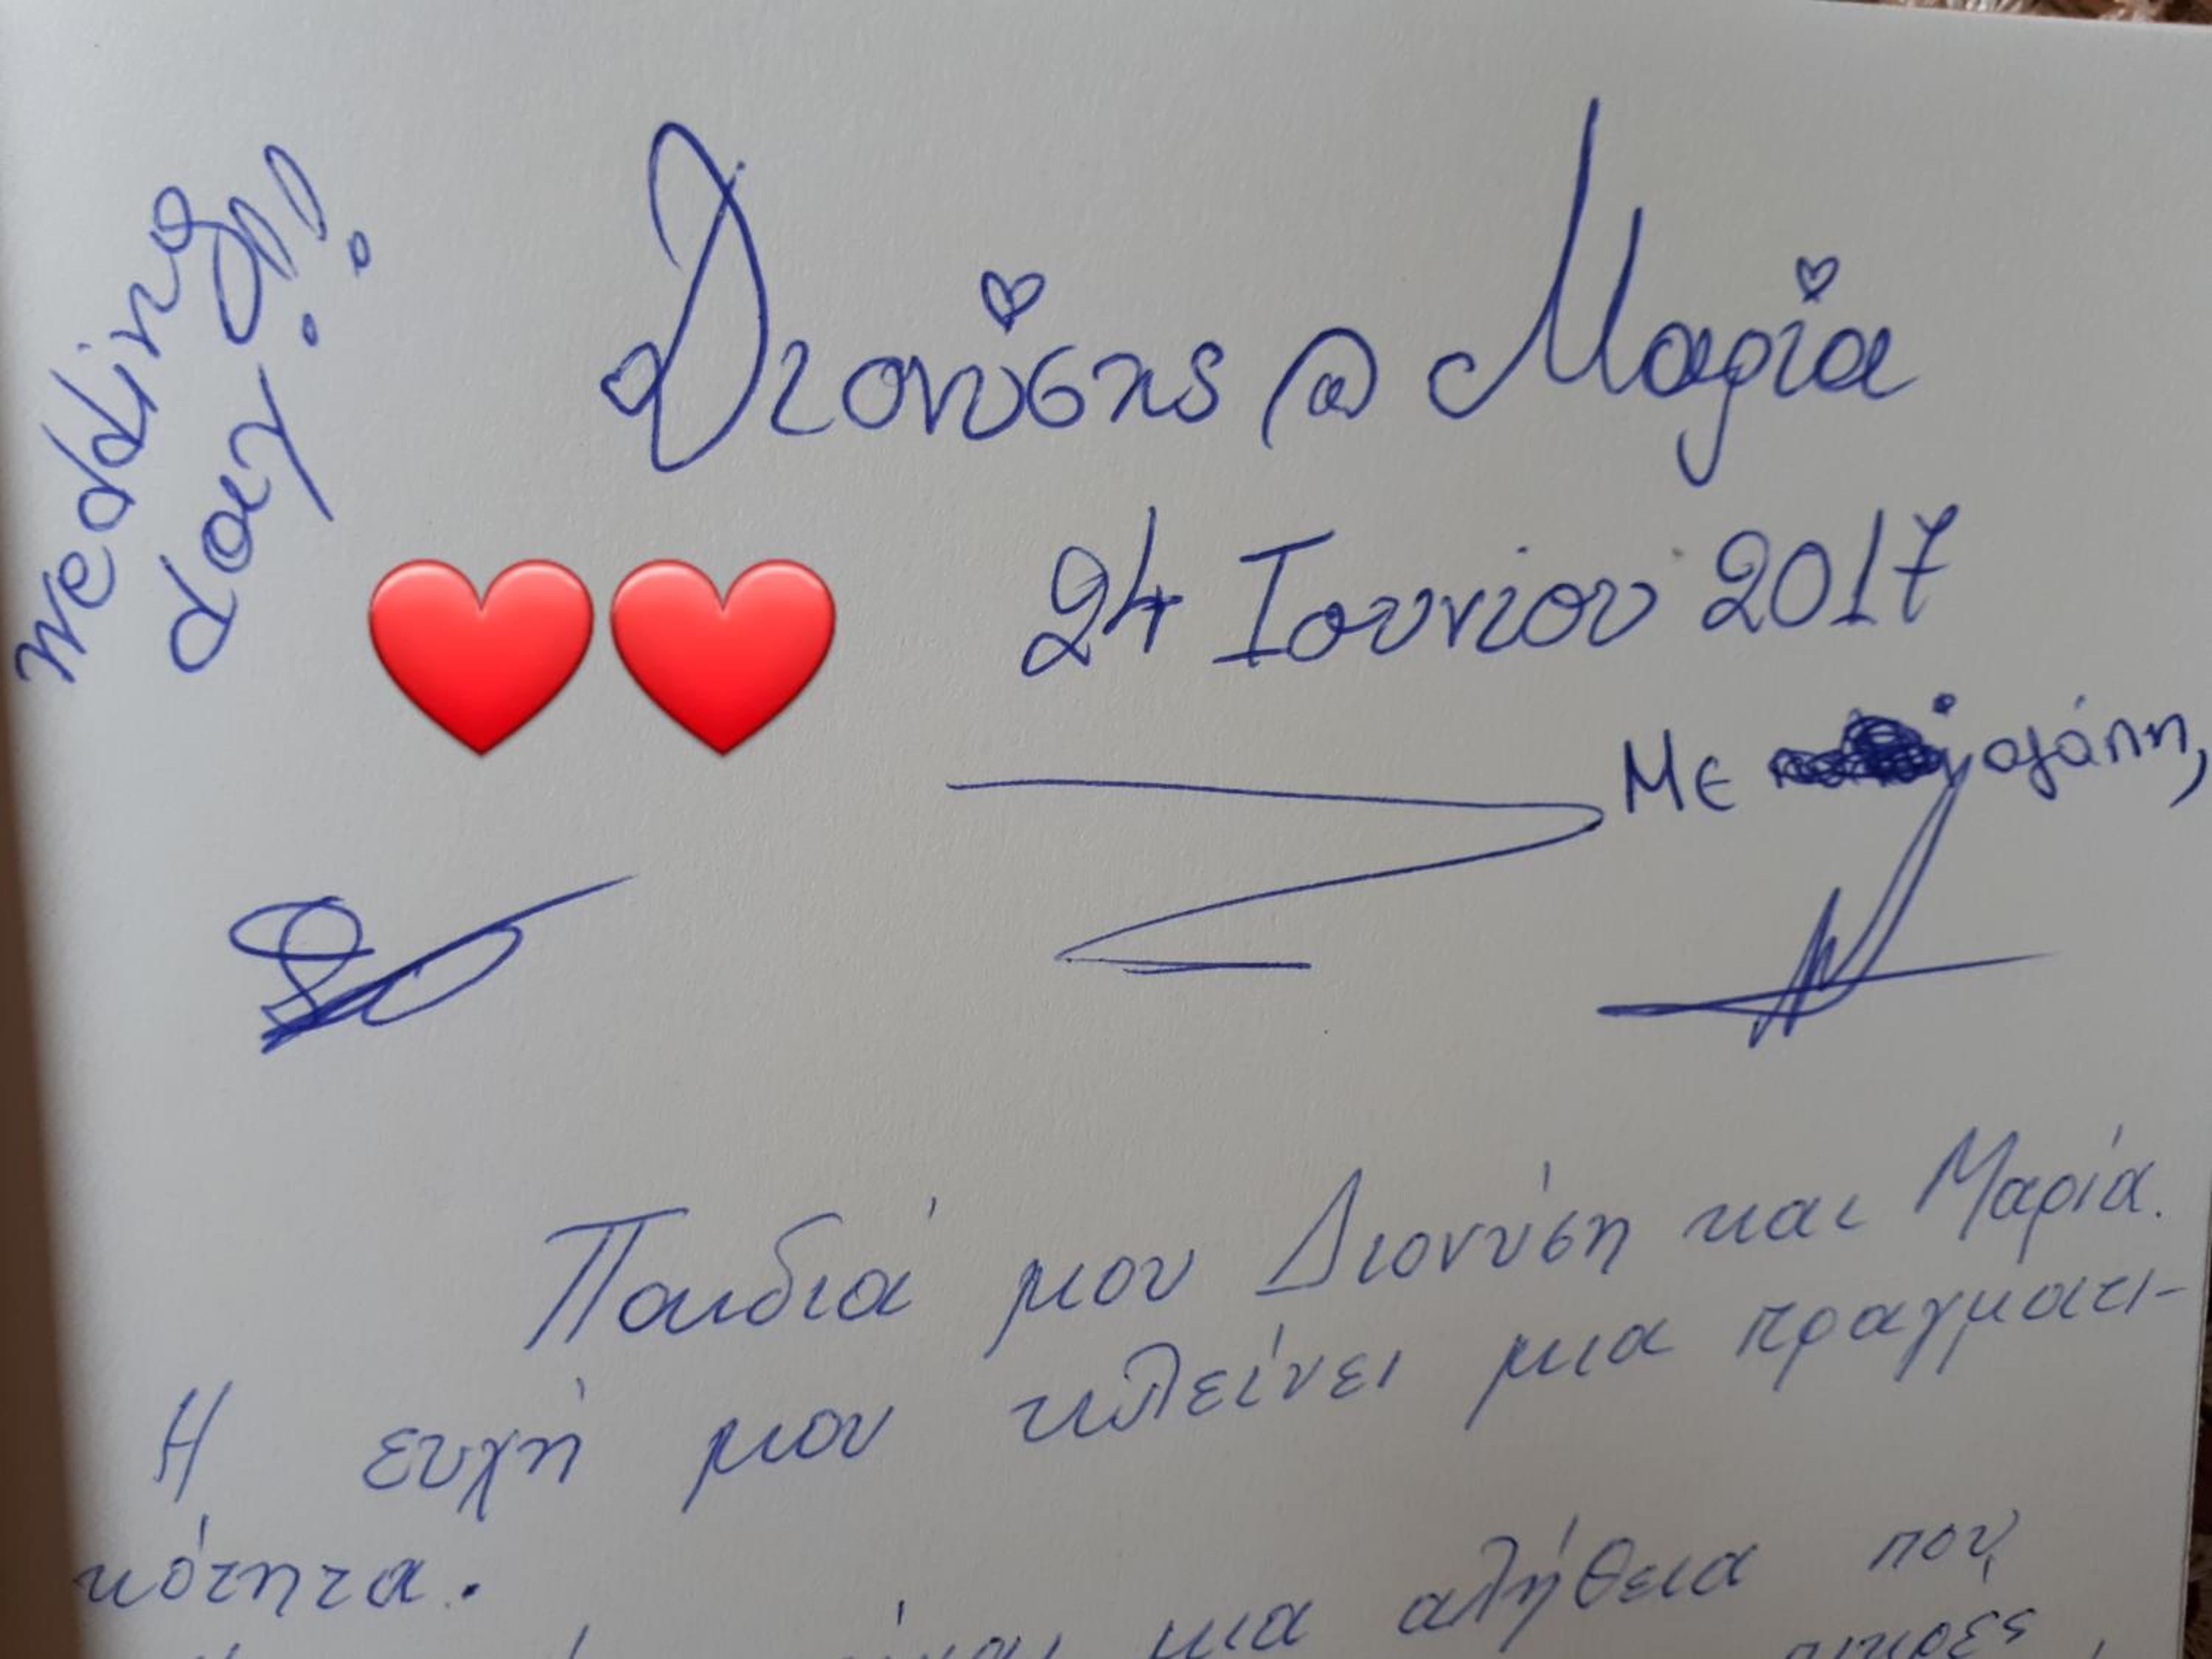 wedding
day!!
Διονύσης @ Μαρία
24 Ιουνίου 2017
Με αγάπη,
Παιδιά μου Διονύση και Μαρία.
Η ευχή μου κλείνει μια πραγματι-
κότητα.
μια αλήθεια που